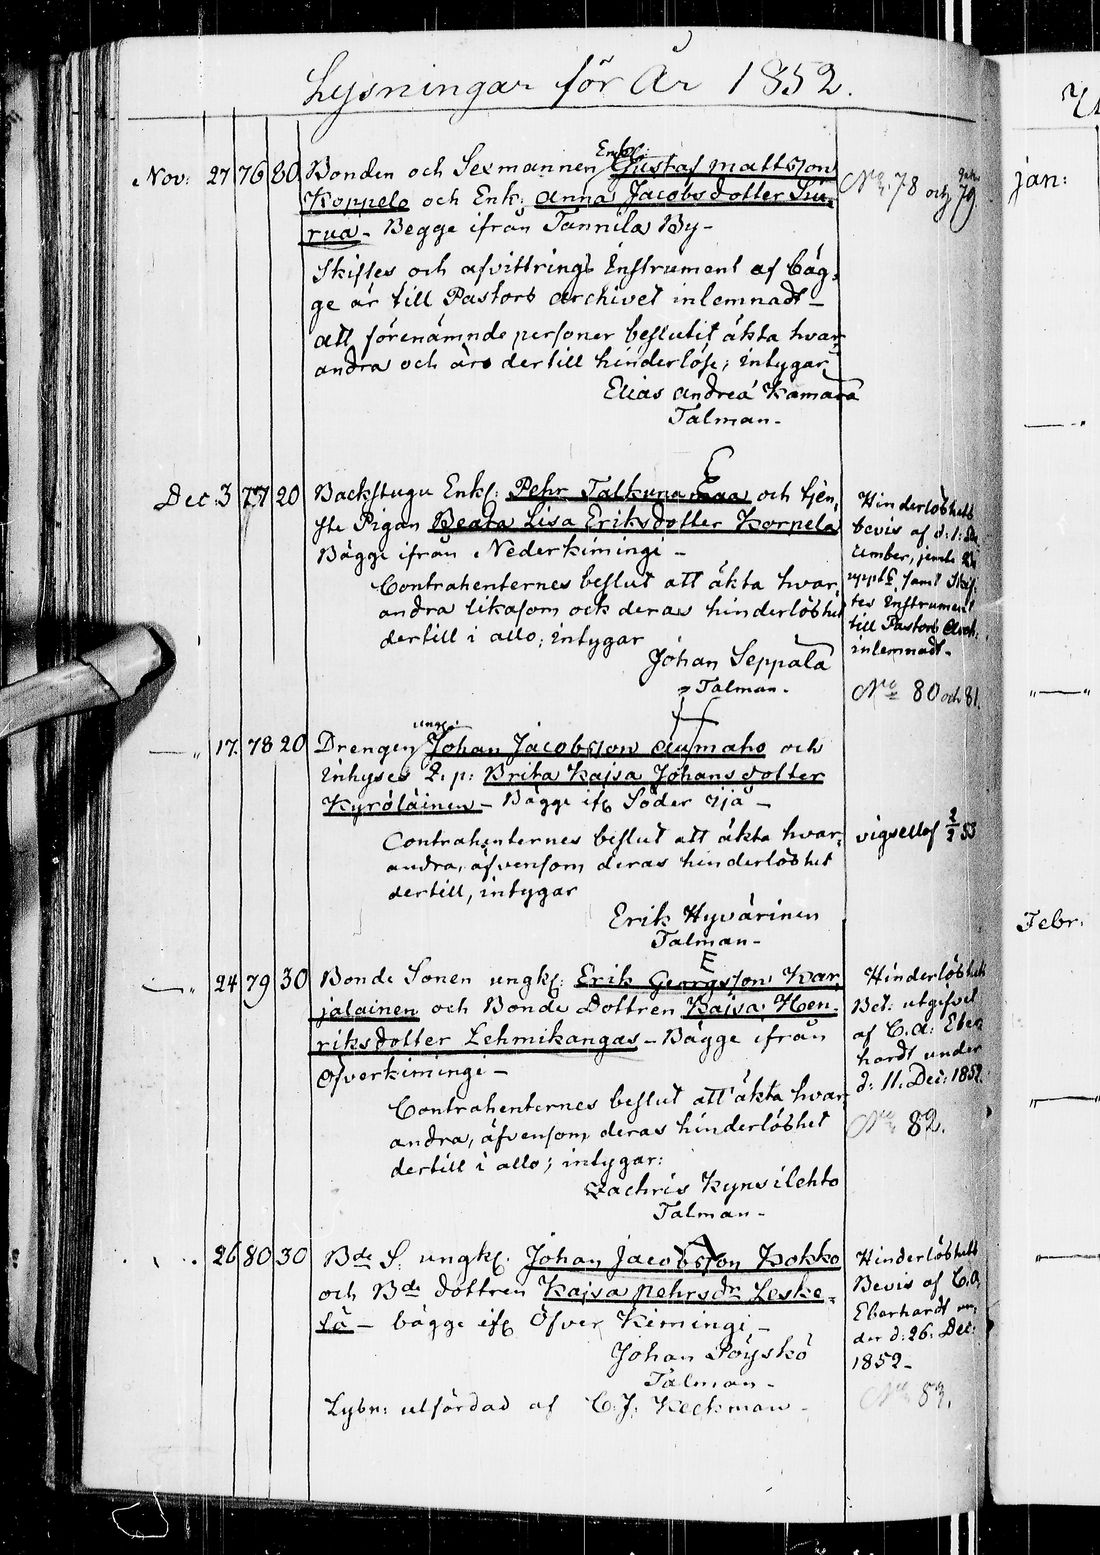 Lysningar för År 1852.
Nov: 27 76 80 Bonden och Sexmannen Enkl: Gustaf Mattsson
Koppelo och Enk: Anna Jacobsdotter Siu-
rua - Begge ifrån Tannila By -
Skiftes och afvittrings Instrument af båg-
ge är till Pastors Archivet inlemnadt -
att förenämnde personer beslutit äkta hvar-
andra och äro dertill hinderlöse; intygar
Elias Andreä Kamara
Talman -
No 78 och 79
Dec 3 77 20 Backstugu Enkl: Pehr Talkunamaa och tjen-
ste Pigan Beata Lisa Eriksdotter Korpela
Bägge ifrån Nederkimingi -
Contrahenternes beslut att äkta hvar-
andra likasom ock deras hinderlöshet
dertill i allo; intygar
Johan Seppälä
Talman -
Hinderlöshets
bevis af d: 1: De
cember, jemte
samt Skif-
tes Instrument
till Pastors Arch.
inlemnadt -
No 80 och 81.
— " 17. 78 20 Drengen ungk: Johan Jacobsson Aumaho och
Inhyses Q. p: Brita Kajsa Johansdotter
Kyröläinen - Bägge ifr Söder Ijä -
Contrahenternes beslut att äkta hvar-
andra, äfvensom deras hinderlöshet
dertill, intygar
Erik Hyvärinen
Talman -
vigsellof 2/2 53
— " 24 79 30 Bonde Sonen ungk: Erik Georgsson Kar-
jalainen och Bonde Dottren Kajsa Hen-
riksdotter Lehmikangas - Bägge ifrån
Öfverkimingi -
Contrahenternes beslut att äkta hvar-
andra, äfvensom deras hinderlöshet
dertill i allo; intygar:
Zachris Kynsilehto
Talman -
Hinderlöshets
Bet: utgifvet
af C. A: Eber
hardt under
d: 11. Dec: 1852.
No 82.
26 80 30 Bde S. ungk: Johan Jacobsson Kokko
och Bde dottren Kajsa Pehrsdr Leske-
lä - bägge ifr Öfver Kimingi -
Johan Pöyskö
Talman -
Lysn: utfördad af C. J. Keckman -
Hinderlöshets
Bevis af C. A.
Eberhardt un-
der d: 26. Dec:
1852 -
No 83.
Jan:
Febr: